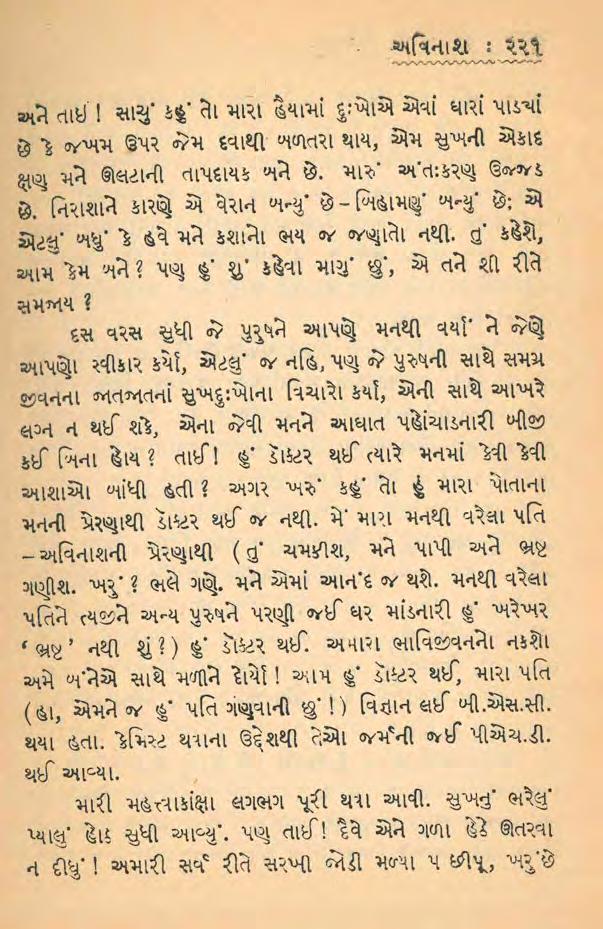 અવિનાશ : ૨૨૧
અને તાઈ ! સાચું કહું તો મારા હૈયામાં દુઃખોએ એવાં ઘારાં પાડ્યાં
છે કે જખમ ઉપર જેમ દવાથી બળતરા થાય, એમ સુખની એકાદ
ક્ષણ મને ઊલટાની તાપદાયક બને છે. મારું અંતઃકરણ ઉજ્જડ
છે. નિરાશાને કારણે એ વેરાન બન્યું છે – બિહામણું બન્યું છે; એ
એટલું બધું કે હવે મને કશાનો ભય જ જણાતો નથી. તું કહેશે,
આમ કેમ બને ? પણ હું શું કહેવા માગું છું, એ તને શી રીતે
સમજાય ?
દસ વરસ સુધી જે પુરુષને આપણે મનથી વર્યાં ને જેણે
આપણો સ્વીકાર કર્યો, એટલું જ નહિ, પણ જે પુરુષની સાથે સમગ્ર
જીવનના જાતજાતનાં સુખદુઃખોના વિચારો કર્યા, એની સાથે આખરે
લગ્ન ન થઈ શકે, એના જેવી મનને આઘાત પહોંચાડનારી બીજી
કઈ બિના હોય ? તાઈ ! હું ડૉક્ટર થઈ ત્યારે મનમાં કેવી કેવી
આશાઓ બાંધી હતી ? અગર ખરું કહું તો હું મારા પોતાના
મનની પ્રેરણાથી ડૉક્ટર થઈ જ નથી. મેં મારા મનથી વરેલા પતિ
– અવિનાશની પ્રેરણાથી ( તું ચમકીશ, મને પાપી અને ભ્રષ્ટ
ગણીશ. ખરું ? ભલે ગણે. મને એમાં આનંદ જ થશે. મનથી વરેલા
પતિને ત્યજીને અન્ય પુરુષને પરણી જઈ ઘર માંડનારી હું ખરેખર
‘ ભ્રષ્ટ ’ નથી શું ? ) હું ડૉક્ટર થઈ. અમારા ભાવિજીવનનો નકશો
અમે બંનેએ સાથે મળીને દોર્યો ! આમ હું ડૉક્ટર થઈ, મારા પતિ
( હા, એમને જ હું પતિ ગણવાની છું ! ) વિજ્ઞાન લઈ બી.એસ.સી.
થયા હતા. કેમિસ્ટ થવાના ઉદ્દેશથી તેઓ જર્મની જઈ પીએચ.ડી.
થઈ આવ્યા.
મારી મહત્ત્વાકાંક્ષા લગભગ પૂરી થવા આવી. સુખનું ભરેલું
પ્યાલું હોઠ સુધી આવ્યું. પણ તાઈ ! દૈવે એને ગળા હેઠે ઊતરવા
ન દીધું ! અમારી સર્વ રીતે સરખી જોડી મળ્યા પછી, ખરું છે